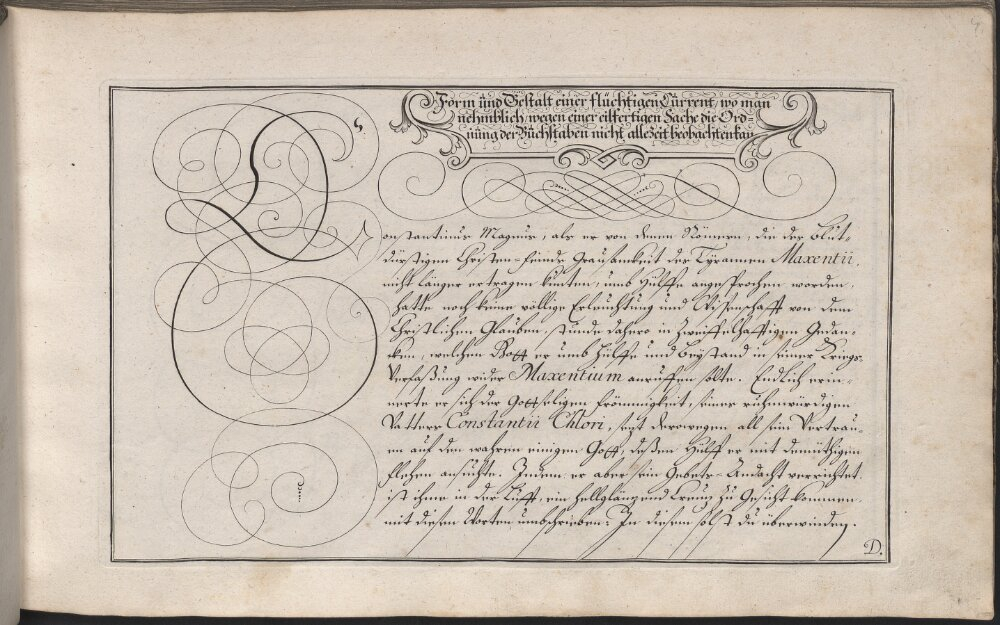 Form und Gestalt einer flüchtigen Current, wo man
nehmblich wegen einer eilfertigen Sache die Ord=
nung der Buchstaben nicht allezeit beobachten kan
Constantinus Magnus, als er von denen Römern, die der Blut-
dürstigen Christen-Feinds Grausamkeit des Tyrannen Maxentii,
nicht länger ertragen kunten, umb Hülffe angesprochen worden,
hatte noch keine völlige Erleuchtung und Wissenschafft von dem
Christlichen Glauben, stunde dahero in zweiffelhafftigen Gedan-
cken, welchen Gott er umb Hülffe und Beystand in seiner Kriegs-
Verfaßung wider Maxentium anruffen solte. Endlich erin-
nerte er sich der Gottseligen Frömmigkeit, seines ruhmwürdigen
Vatters Constantii Chlori, setzt derowegen all sein Vertrau-
en auf den wahren einigen Gott, deßen Hülff er mit demüthigen
flehen ansuchte. Indem er aber sein Gebets-Andacht verrichtet
ist ihme in der Lufft, ein hellglänzend Creutz zu Gesicht kommen
mit diesen Worten umbschrieben: In diesem solst du überwinden.
D.